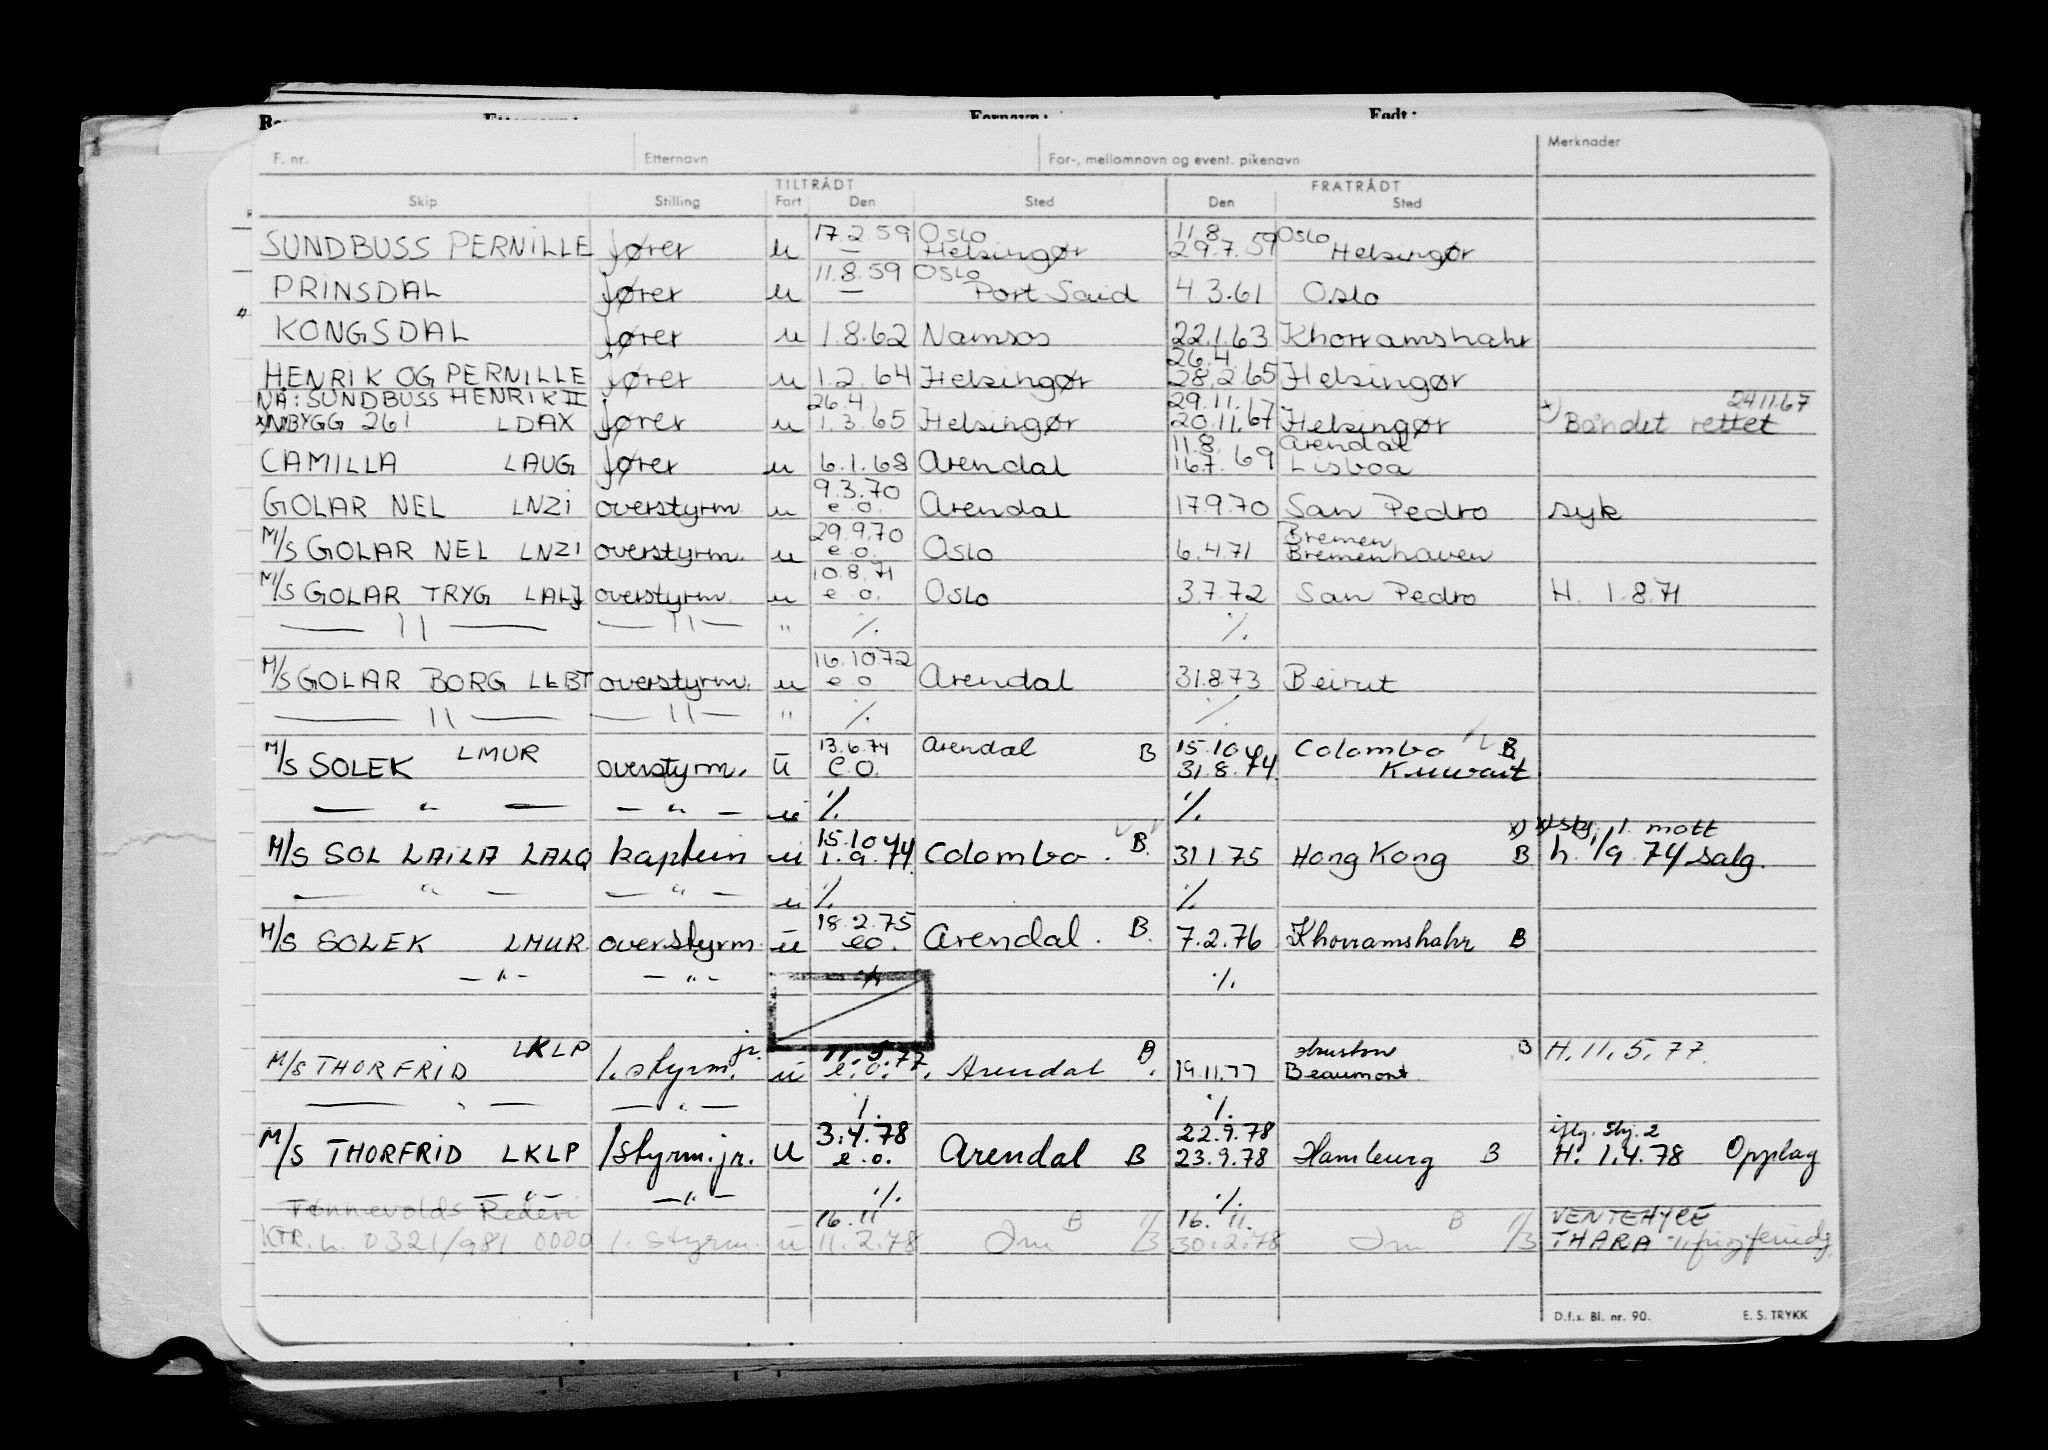 Etternavn: Fornavn: Født:
F. nr. Etternavn For-, mellomnavn og event. pikenavn Merknader
TILTRÅDT FRATRÅDT
Skip Stilling Fart Den Sted Den Sted
17.2.59 Oslo 11.8. Oslo
SUNDBUSS PERNILLE fører u — Helsingør 29.7.59 Helsingør
11.8.59 Oslo
PRINSDAL fører u — Port Said 4.3.61 Oslo
KONGSDAL fører u 1.8.62 Namsos 22.1.63 Khorramshahr
26.4.
HENRIK OG PERNILLE fører u 1.2.64 Helsingør 28.2.65 Helsingør
NÅ: SUNDBUSS HENRIK II 26.4. 29.11.67 24.11.67
x) NYBYGG 261 LDAX fører u 1.3.65 Helsingør 20.11.67 Helsingør x) Båndet rettet
11.8. Arendal
CAMILLA LAUG fører u 6.1.68 Arendal 16.7.69 Lisboa
9.3.70
GOLAR NEL LNZI overstyrm. u e.o. Arendal 17.9.70 San Pedro syk
29.9.70 Bremen
M/S GOLAR NEL LNZI overstyrm. u e.o. Oslo 6.4.71 Bremenhaven
10.8.71
M/S GOLAR TRYG LALJ overstyrm. u e.o. Oslo 3.7.72 San Pedro H. 1.8.71
— " — — " — " ·/. ·/.
16.10.72
M/S GOLAR BORG LLBT overstyrm. u e.o. Arendal 31.8.73 Beirut
— " — — " — " ·/. ·/.
LMUR 13.6.74 Arendal B 15.10.74 Colombo B
M/S SOLEK overstyrm. u e.o. 31.8.74 Kuwait
— " — — " — u ·/. ·/.
15.10.74 B. x) x) skj. 1. mott
M/S SOL LAILA LALQ kaptein u 1.9.74 Colombo. 31.1.75 Hong Kong B h. 1/9.74 salg.
— " — — " — u ·/. ·/.
18.2.75
M/S SOLEK LMUR overstyrm. u eo. Arendal. B. 7.2.76 Khorramshahr B
— " — — " — ·/. ·/.
LKLP jr. 11.5.77 B Houston B H. 11.5.77.
M/S THORFRID 1. styrm. u e.o. Arendal. 19.11.77 Beaumont
— " — — " — ·/. ·/.
3.4.78 22.9.78 iflg. skj. 2
M/S THORFRID LKLP 1 styrm. jr. u e.o. Arendal B 23.9.78 Hamburg B H. 1.4.78 Opplag
— " — — " — ·/. ·/.
Tønnevolds Rederi 16.11 B 16.11. B VENTEHYRE
KTR. h. 0321/981 0000 1. styrm. u 11.2.78 1/3 30.2.78 1/3 THARA
D.f.s. Bl. nr. 90. E. S. TRYKK